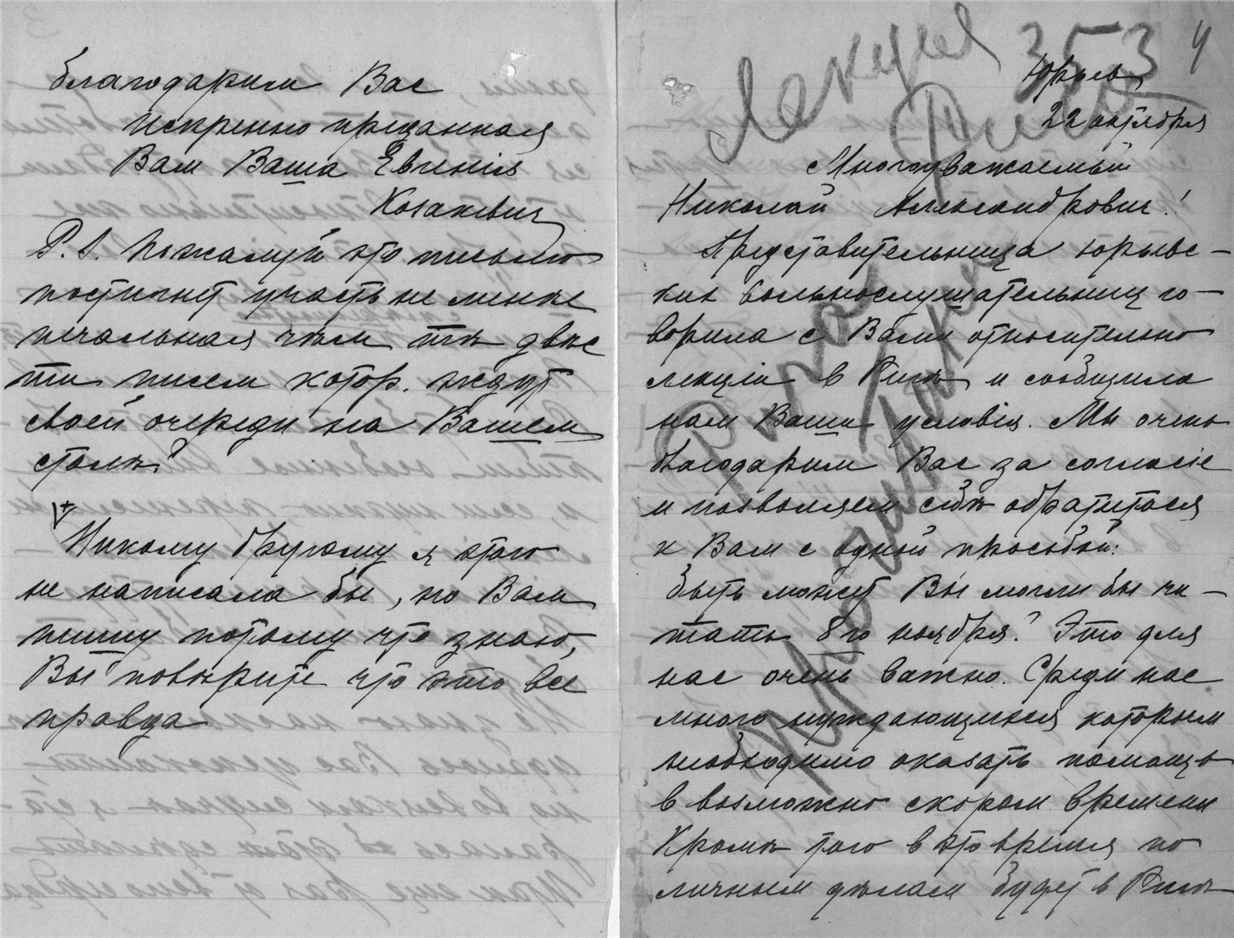 благодарим Вас
искренно преданная
Вам Ваша Евгенія
Козакевич
P.S. Пожалуй это письмо
постигнет участь не менѣе
печальная чѣм тѣ двѣс
ти писем котор. ждут
своей очереди на Вашем
столѣ?
Никому другому я этого
не написала бы, но Вам
пишу потому что знаю,
Вы повѣрите что это все
правда
Лекція 353 4
Рига
Юрьев
22 октября
Многоуважаемый
Николай Александрович!
Представительница юрьевс-
ких вольнослушательниц го-
ворила с Вами относительно
лекціи в Ригѣ и сообщила
нам Ваши условія. Мы очень
благодарим Вас за согласіе
и позволяем себѣ обратиться
к Вам с одной просьбой:
Быть может Вы могли бы чи-
тать 8го ноября? Это для
нас очень важно. Среди нас
много нуждающихся которым
необходимо оказать помощь
в возможно скором времени
Кромѣ того в это время по
личным дѣлам будет в Ригѣ